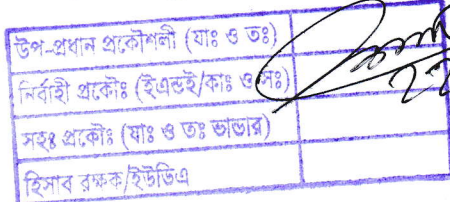 উপ-প্রধান প্রকৌশলী (যাঃ ও তঃ)
নির্বাহী প্রকৌঃ (ইএন্ডই/কাঃ ও সঃ)
সহঃ প্রকৌঃ (যাঃ ও তঃ ভান্ডার)
হিসাব রক্ষক/ইউডিএ